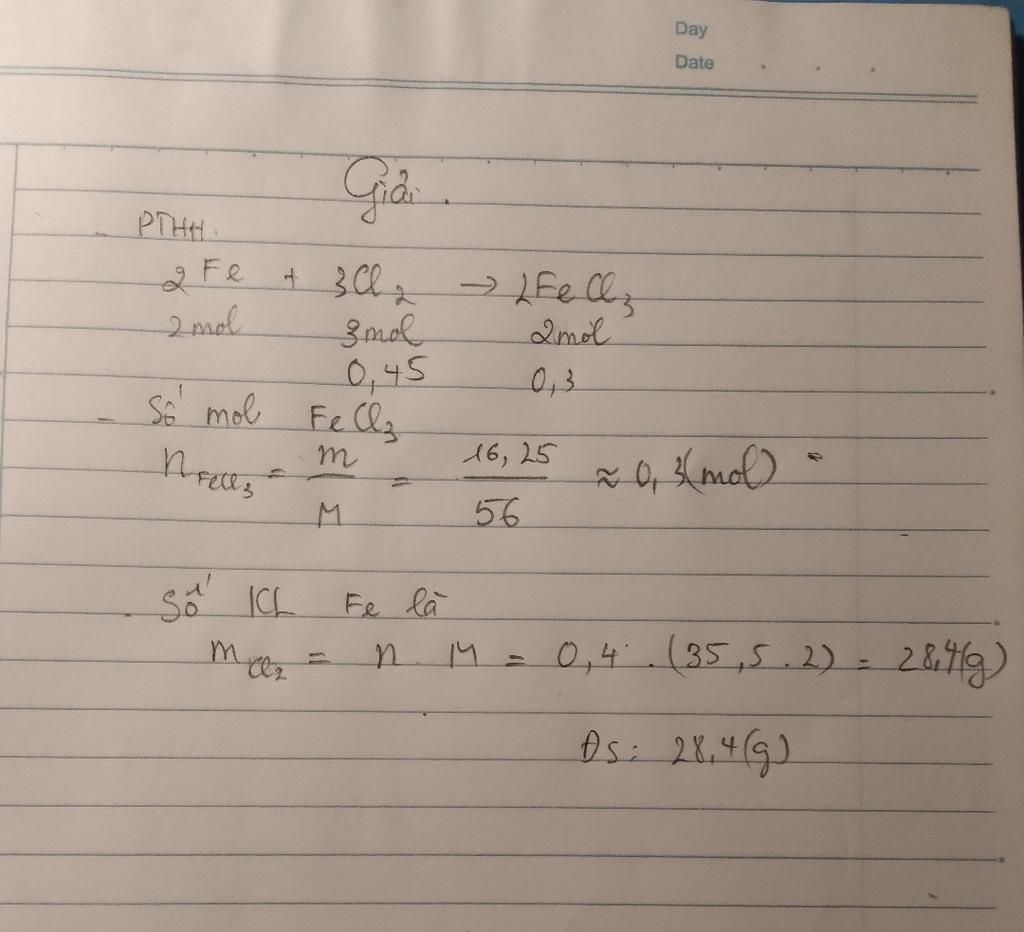 Day
Date . . .
Giải .
- PTHH.
2 Fe + 3Cl₂ → 2FeCl₃
2 mol 3mol 2mol
0,45 0,3
- Số mol FeCl₃
n FeCl₃ = m/M = 16,25/56 ≈ 0,3(mol)
- Số KL Fe là
m Cl₂ = n . M = 0,4 . (35,5 . 2) = 28,4(g)
Đs: 28,4(g)